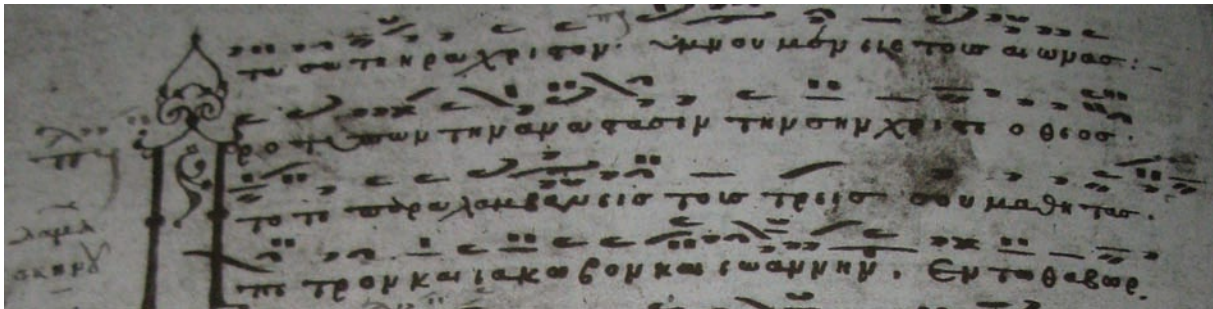 σωτηρα χριστον. υμνουμεν εις τους αιωνας:-
Προτυπων την αναστασιν την σην χριστε ο θεος.
τοτε παραλαμβανεις τους τρεις σου μαθητας.
πετρον και ιακωβον και ιωαννην. Εν τω θαβωρ.